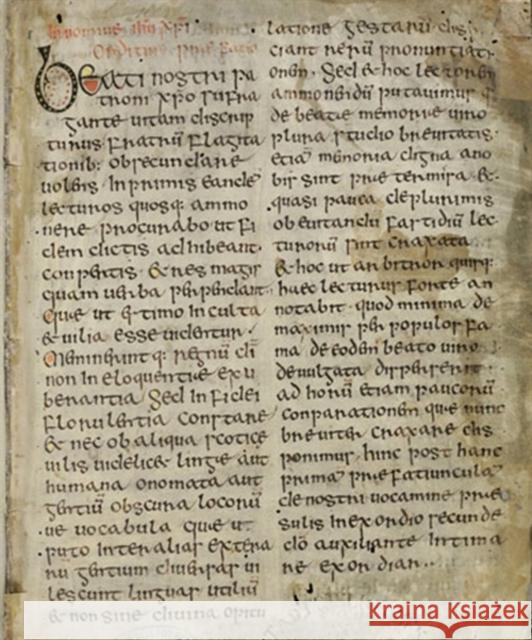 In nomine ihu xpi
Orditur prae fatio
Beati nostri pa
troni xpo suffra
gante uitam discrip
turus fratrū flagita
tionib; obsecundare
uolens. In primis eandē
lecturos quosq; ammo
nere procurabo ut fi
dem dictis adhibeant
conpertis. & res magis
quam uerba perpendant.
Que ut estimo In culta
& uilia esse uidentur.
Meminerint q; regnū dī
non In eloquentiae exu
berantia. Sed In fidei
florulentia constare
& nec ob aliqua scotice
uilis uidelicet linge aut
humana onomata aut
gentiū obscura locorū
ue uocabula que ut
puto Inter alias externa
rū gentium diuersas ui
lescunt linguas utiliū
& non sine diuina opitu
latione gestarū dis
ciant rerū pronuntiati
onem. Sed & hoc lectorem
ammonendū putauimus q
de beatae memoriae uiro
plura studio breuitatis.
etiā memoria digna a no
bis sint praetermisa. &
quasi pauca de plurimis
ob euitandū fastidiū lec
torum sint craxata
& hoc ut arbitror quisq;
haec lecturus forte an
notabit. quod minima de
maximis per populos fa
ma de eodem beato uiro
deuulgata disperserit
ad horū etiam paucorū
conparationem quae nunc
breuiter craxare dis
ponimus. hinc post hanc
primā praefatiunculā
de nostri uocamine prae
sulis In exordio secunde
dō auxiliante Intima
re exordiar..